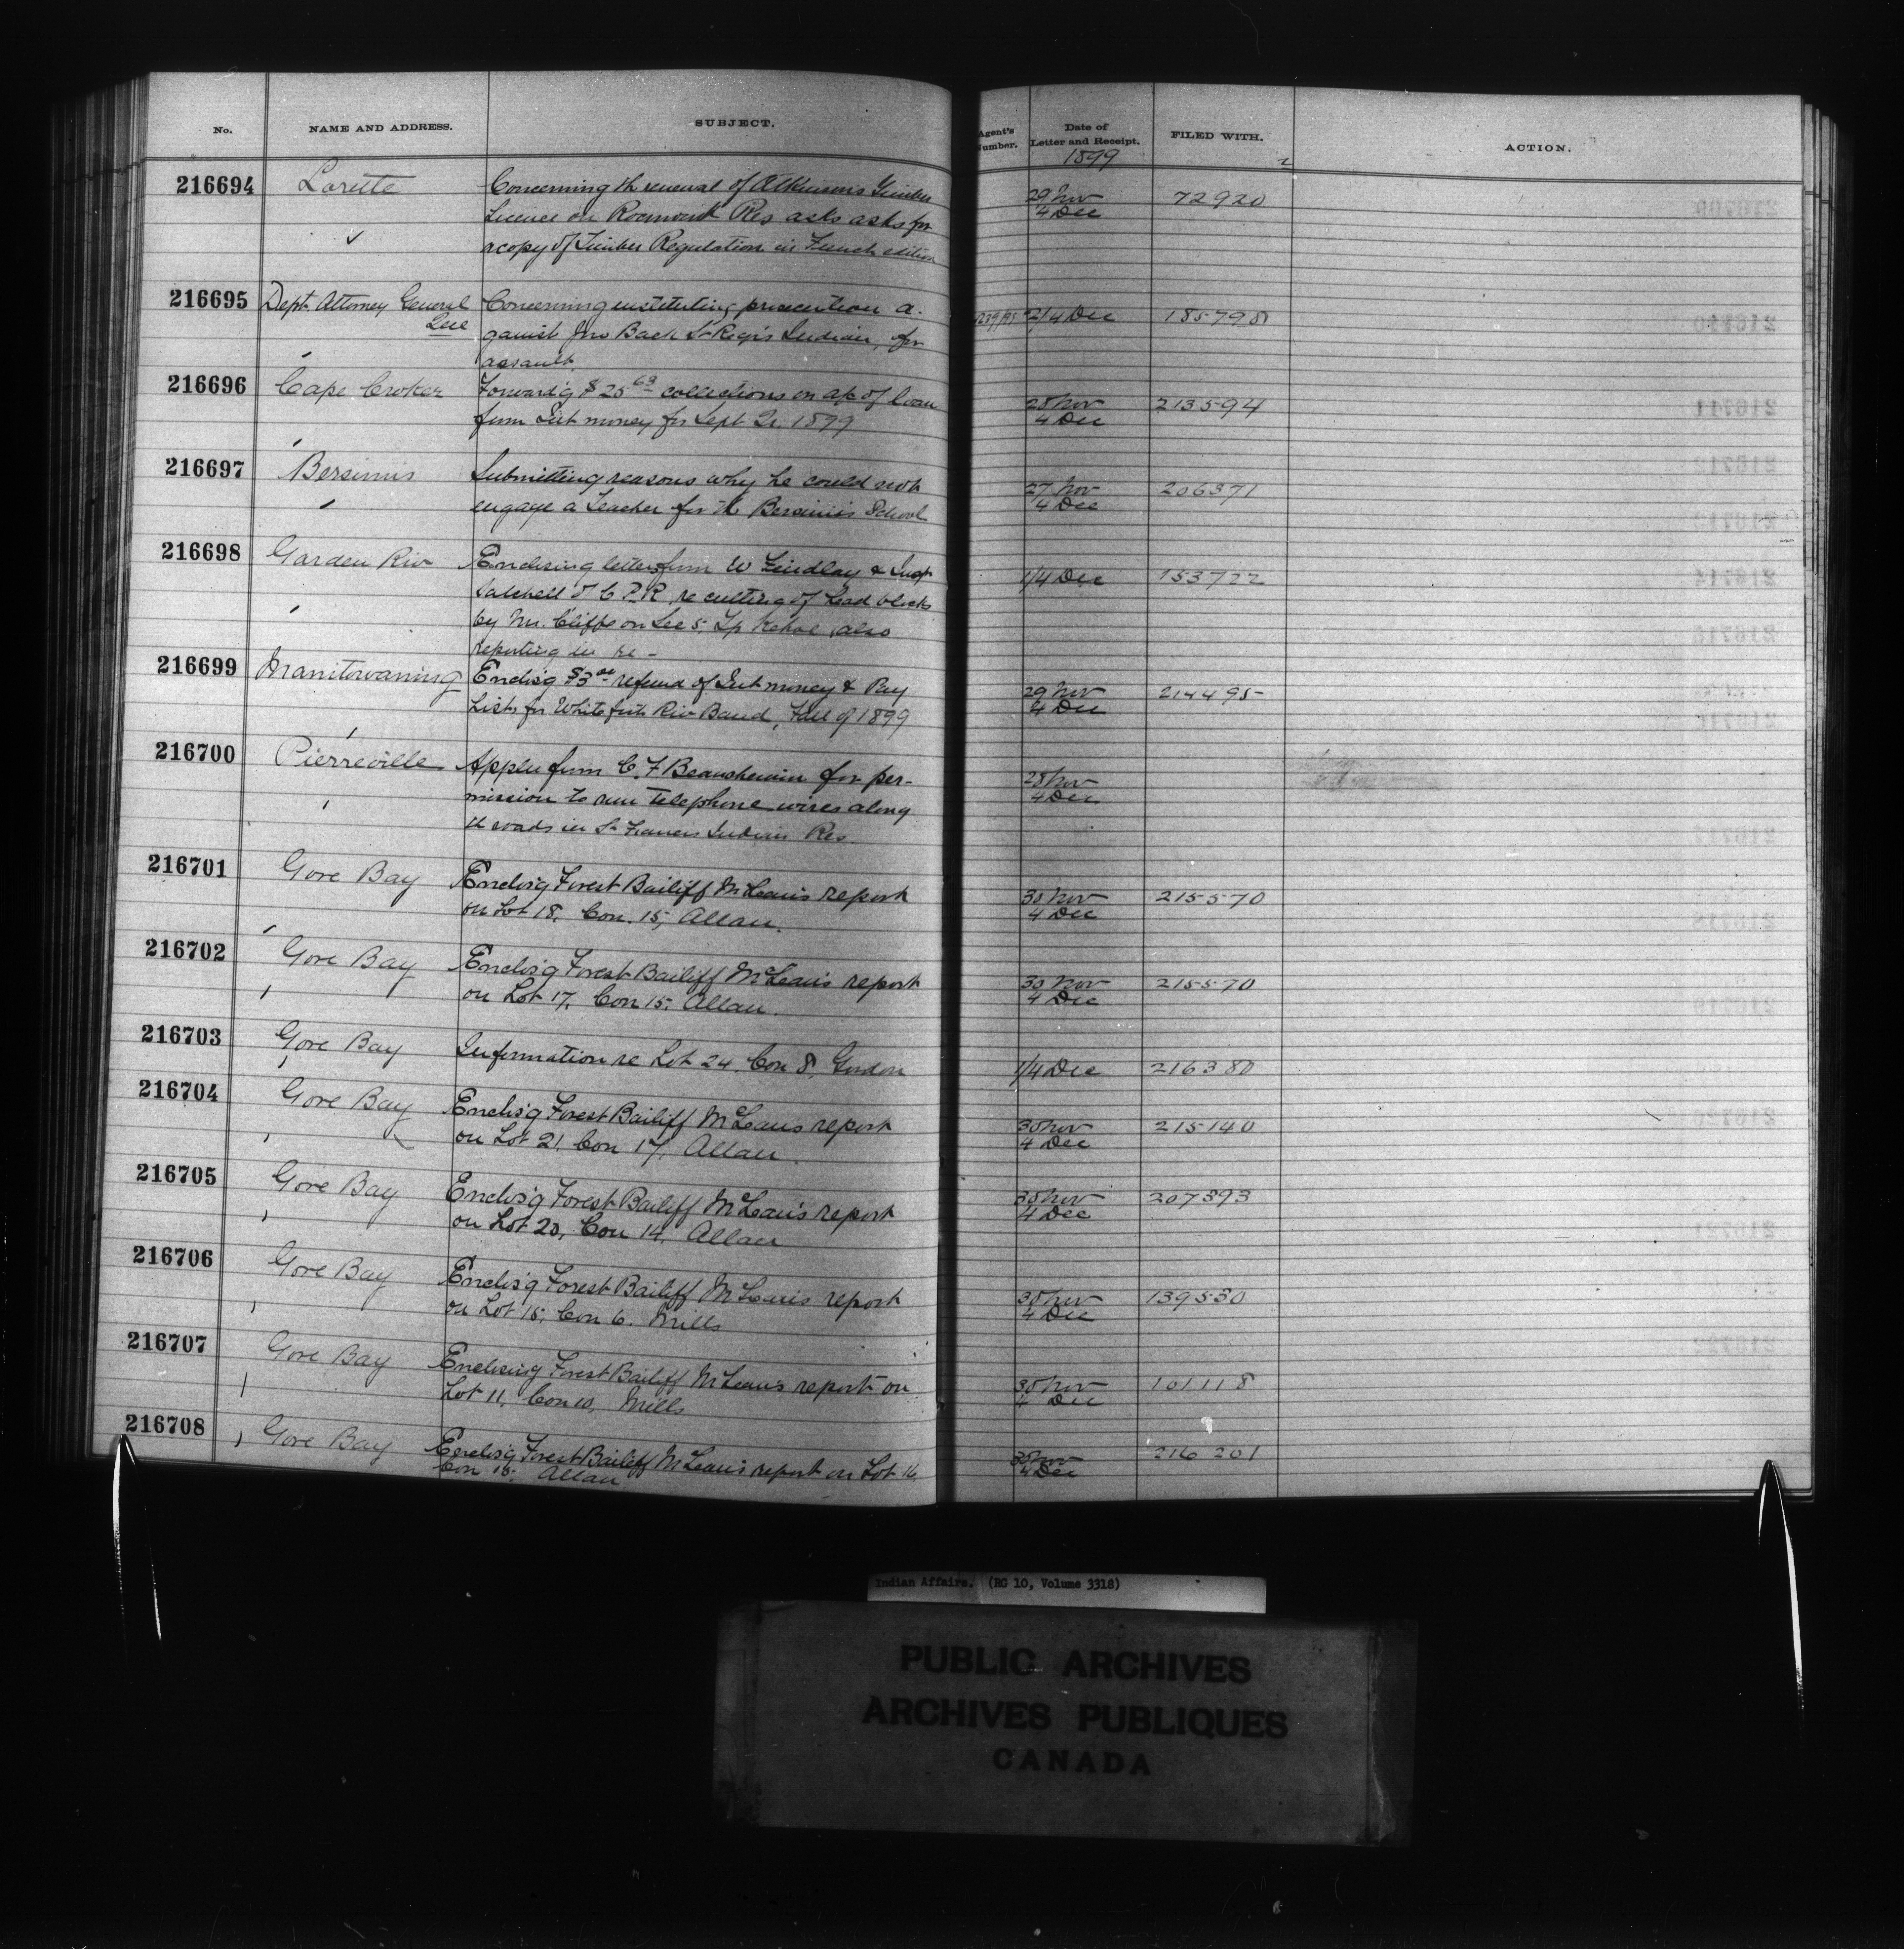 No. NAME AND ADDRESS. SUBJECT. Agent's Number. Date of Letter and Receipt. FILED WITH. ACTION.
1899
216694 Lorette Concerning th renewal of Atkinsons Timber 29 Nov 72920
Licence on Rocmont Res asks asks for 4 Dec
a copy of Timber Regulation in French edition
216695 Dept. Attorney General Concerning instituting prosecution a- 2/4 Dec 185798
Que gainst Jno Back St Regis Indian, for
assault.
216696 Cape Croker Forward'g $25 63 collections on a/c of loan 28 Nov 213594
from Int money for Sept Qr 1899 4 Dec
216697 Bersimis Submitting reasons why he could not 27 Nov 206371
engage a Teacher for th Bersimis School 4 Dec
216698 Garden Riv Enclosing letters from W Findlay & Supt 1/4 Dec 153722
of C.P.R. re cutting of Load blocks
by Mr. Cliffe on Sec 5, Tp Kehoe, also
reporting in re -
216699 Manitowaning Enclos'g $3 refund of Int money & Pay 29 Nov 214495
Lists for White fish Riv Band, Fall of 1899 4 Dec
216700 Pierreville Appln from C. F Beauchemin for per- 28 Nov
mission to run Telephone wires along 4 Dec
th roads in St Francis Indian Res.
216701 Gore Bay Enclos'g Forest Bailiff McLean's report 30 Nov 215570
on Lot 18, Con. 15, Allan. 4 Dec
216702 Gore Bay Enclos'g Forest Bailiff McLean's report 30 Nov 215570
on Lot 17, Con 15, Allan. 4 Dec
216703 Gore Bay Information re Lot 24, Con 8, Gordon 1/4 Dec 216380
216704 Gore Bay Enclos'g Forest Bailiff McLean's report 30 Nov 215140
on Lot 21, Con 17, Allan. 4 Dec
216705 Gore Bay Enclos'g Forest Bailiff McLean's report 30 Nov 207393
on Lot 20, Con 14, Allan 4 Dec
216706 Gore Bay Enclos'g Forest Bailiff McLean's report 30 Nov 139530
on Lot 15, Con 6. Mills 4 Dec
216707 Gore Bay Enclosing Forest Bailiff McLean's report on 30 Nov 101118
Lot 11, Con 10, Mills 4 Dec
216708 Gore Bay Enclos'g Forest Bailiff McLean's report on Lot 16, 30 Nov 216201
Con 15, Allan 4 Dec
Indian Affairs. (RG 10, Volume 3318)
PUBLIC ARCHIVES
ARCHIVES PUBLIQUES
CANADA